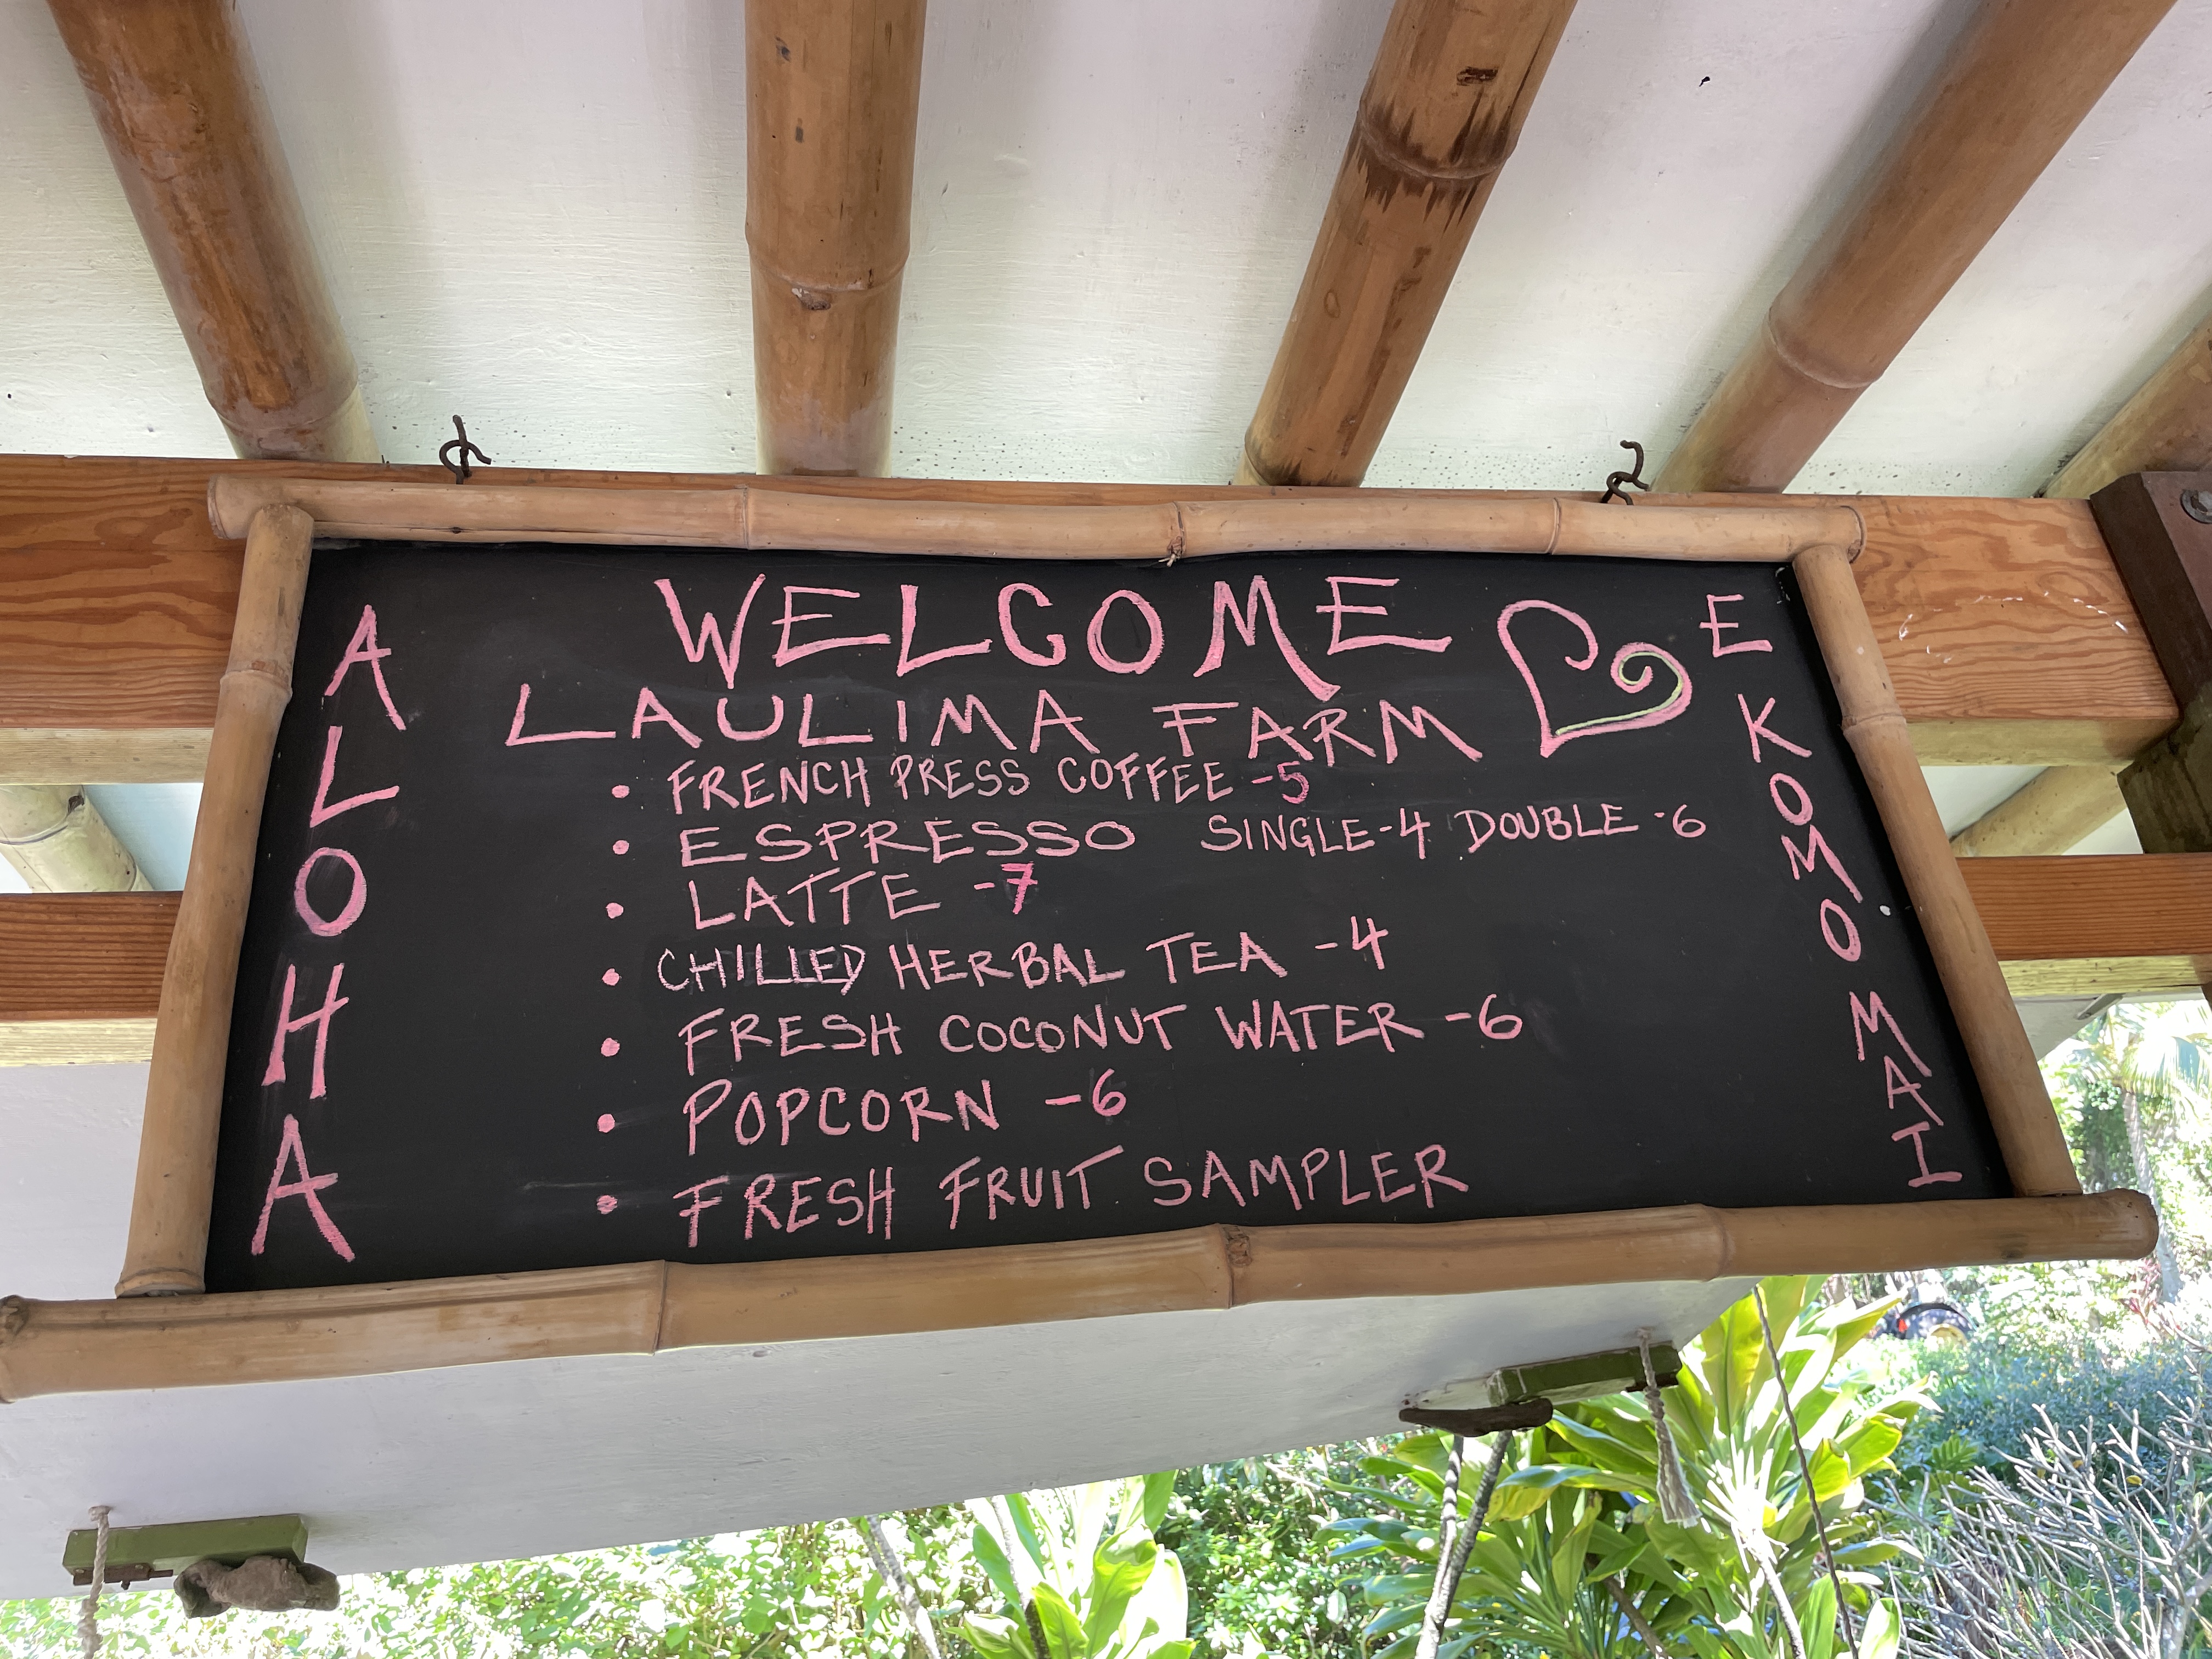 WELCOME
LAULIMA FARM
• FRENCH PRESS COFFEE -5
• ESPRESSO SINGLE-4 DOUBLE -6
• LATTE -7
• CHILLED HERBAL TEA -4
• FRESH COCONUT WATER -6
• POPCORN -6
• FRESH FRUIT SAMPLER
ALOHA
E KOMO MAI